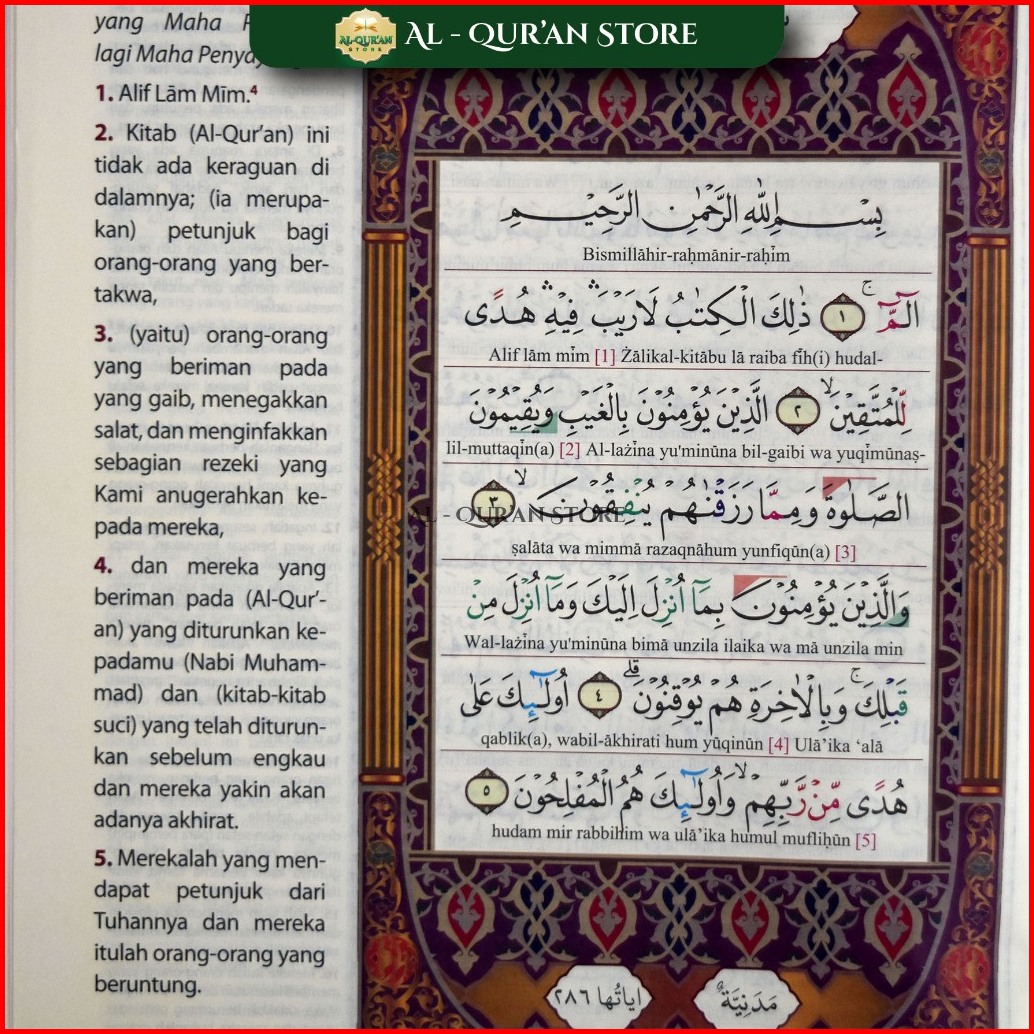 AL-QUR'AN STORE
AL - QUR'AN STORE
yang Maha
lagi Maha
1. Alif Lām Mīm.⁴
2. Kitab (Al-Qur'an) ini
tidak ada keraguan di
dalamnya; (ia merupa-
kan) petunjuk bagi
orang-orang yang ber-
takwa,
3. (yaitu) orang-orang
yang beriman pada
yang gaib, menegakkan
salat, dan menginfakkan
sebagian rezeki yang
Kami anugerahkan ke-
pada mereka,
4. dan mereka yang
beriman pada (Al-Qur'-
an) yang diturunkan ke-
padamu (Nabi Muham-
mad) dan (kitab-kitab
suci) yang telah diturun-
kan sebelum engkau
dan mereka yakin akan
adanya akhirat.
5. Merekalah yang men-
dapat petunjuk dari
Tuhannya dan mereka
itulah orang-orang yang
beruntung.
بِسْمِ اللّٰهِ الرَّحْمٰنِ الرَّحِيْمِ
Bismillāhir-raḥmānir-raḥīm
الۤمّۤ ۚ ١ ذٰلِكَ الْكِتٰبُ لَا رَيْبَ ۛ فِيْهِ ۛ هُدًى
Alif lām mīm [1] Żālikal-kitābu lā raiba fīh(i) hudal-
لِّلْمُتَّقِيْنَ ۙ ٢ الَّذِيْنَ يُؤْمِنُوْنَ بِالْغَيْبِ وَيُقِيْمُوْنَ
lil-muttaqīn(a) [2] Al-lażīna yu'minūna bil-gaibi wa yuqīmūnaṣ-
الصَّلٰوةَ وَمِمَّا رَزَقْنٰهُمْ يُنْفِقُوْنَ ۙ ٣
AL - QUR'AN STORE
ṣalāta wa mimmā razaqnāhum yunfiqūn(a) [3]
وَالَّذِيْنَ يُؤْمِنُوْنَ بِمَآ اُنْزِلَ اِلَيْكَ وَمَآ اُنْزِلَ مِنْ
Wal-lażīna yu'minūna bimā unzila ilaika wa mā unzila min
قَبْلِكَ ۚ وَبِالْاٰخِرَةِ هُمْ يُوْقِنُوْنَ ۗ ٤ اُولٰۤىِٕكَ عَلٰى
qablik(a), wabil-ākhirati hum yūqinūn [4] Ulā'ika ‘alā
هُدًى مِّنْ رَّبِّهِمْ ۙ وَاُولٰۤىِٕكَ هُمُ الْمُفْلِحُوْنَ ٥
hudam mir rabbihim wa ulā'ika humul mufliḥūn [5]
مَدَنِيَّةٌ اٰيَاتُهَا ٢٨٦